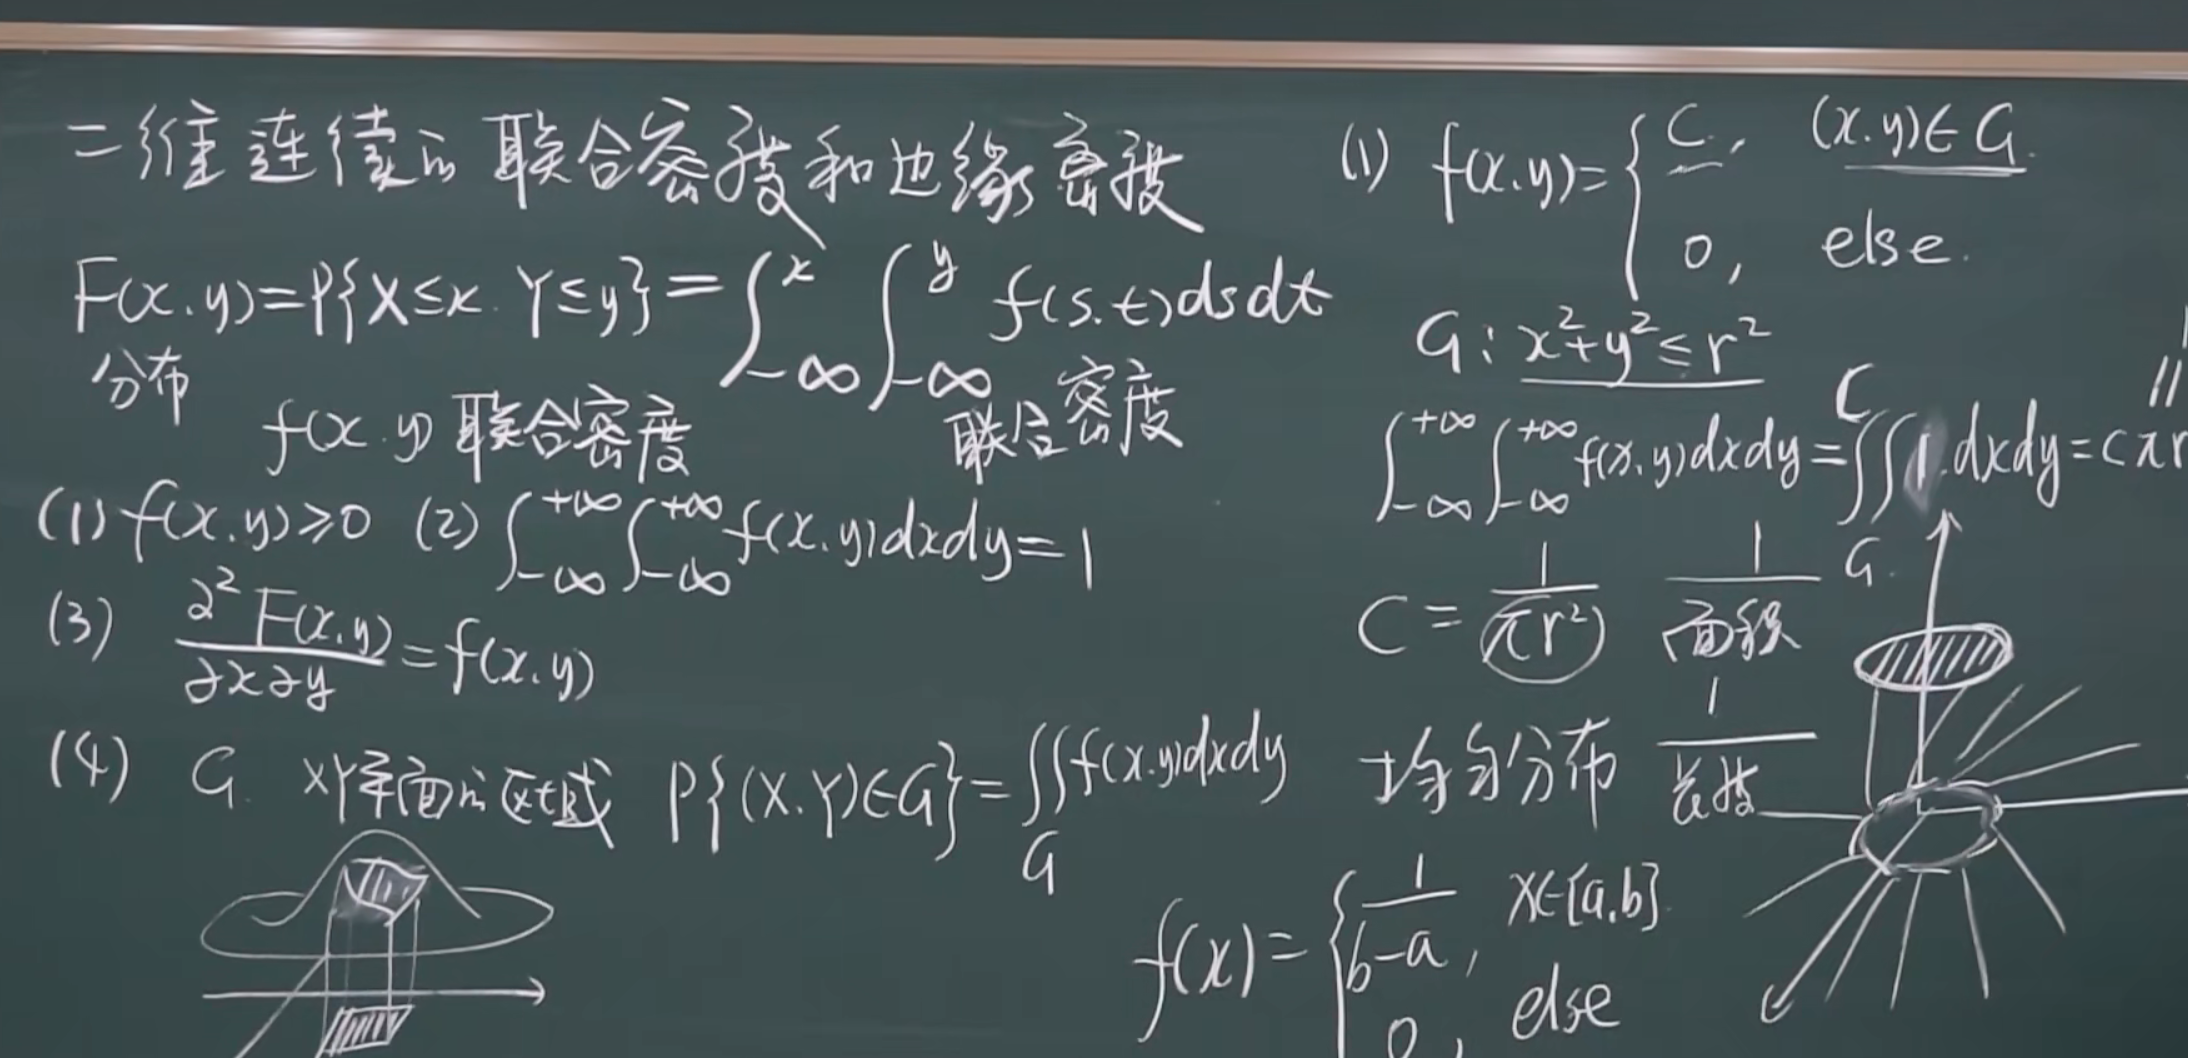 二维连续的联合密度和边缘密度
F(x.y)=P{X≤x. Y≤y}=∫_{-∞}^{x}∫_{-∞}^{y} f(s.t)dsdt
分布
联合密度
f(x.y) 联合密度
(1) f(x.y)≥0 (2) ∫_{-∞}^{+∞}∫_{-∞}^{+∞} f(x.y)dxdy=1
(3) ∂²F(x.y)/∂x∂y=f(x.y)
(4) G. XY平面的区域 P{(X.Y)∈G}=∬_G f(x.y)dxdy
(1) f(x.y)={C, (x.y)∈G.
0, else.
G: x²+y²≤r²
∫_{-∞}^{+∞}∫_{-∞}^{+∞} f(x.y)dxdy=C∬_G 1.dxdy=cπr
C=1/(πr²) 1/面积
均匀分布 1/长度
f(x)={1/(b-a), x∈[a.b].
0, else